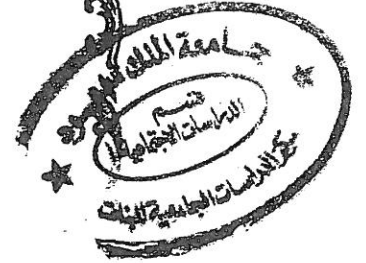 جامعة الملك سعود
قسم
الدراسات الاجتماعية
مركز الدراسات الجامعية للبنات